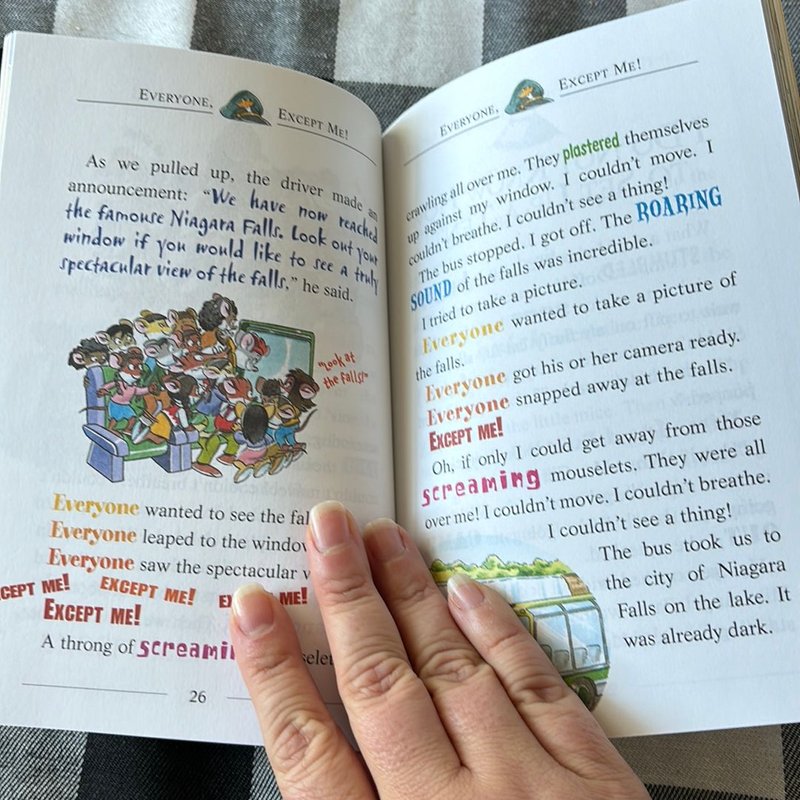 EVERYONE, EXCEPT ME!
As we pulled up, the driver made an
announcement: "We have now reached
the famouse Niagara Falls. Look out your
window if you would like to see a truly
spectacular view of the falls," he said.
"Look at
the falls!"
Everyone wanted to see the
Everyone leaped to the
Everyone saw the spectacular
EXCEPT ME! EXCEPT ME!
EXCEPT ME!
A throng of
26
EVERYONE, EXCEPT ME!
crawling all over me. They plastered themselves
up against my window. I couldn't move. I
couldn't breathe. I couldn't see a thing!
The bus stopped. I got off. The ROARING
SOUND of the falls was incredible.
I tried to take a picture.
Everyone wanted to take a picture of
the falls.
Everyone got his or her camera ready.
Everyone snapped away at the falls.
EXCEPT ME!
Oh, if only I could get away from those
screaming mouselets. They were all
over me! I couldn't move. I couldn't breathe.
I couldn't see a thing!
The bus took us to
the city of Niagara
Falls on the lake. It
was already dark.